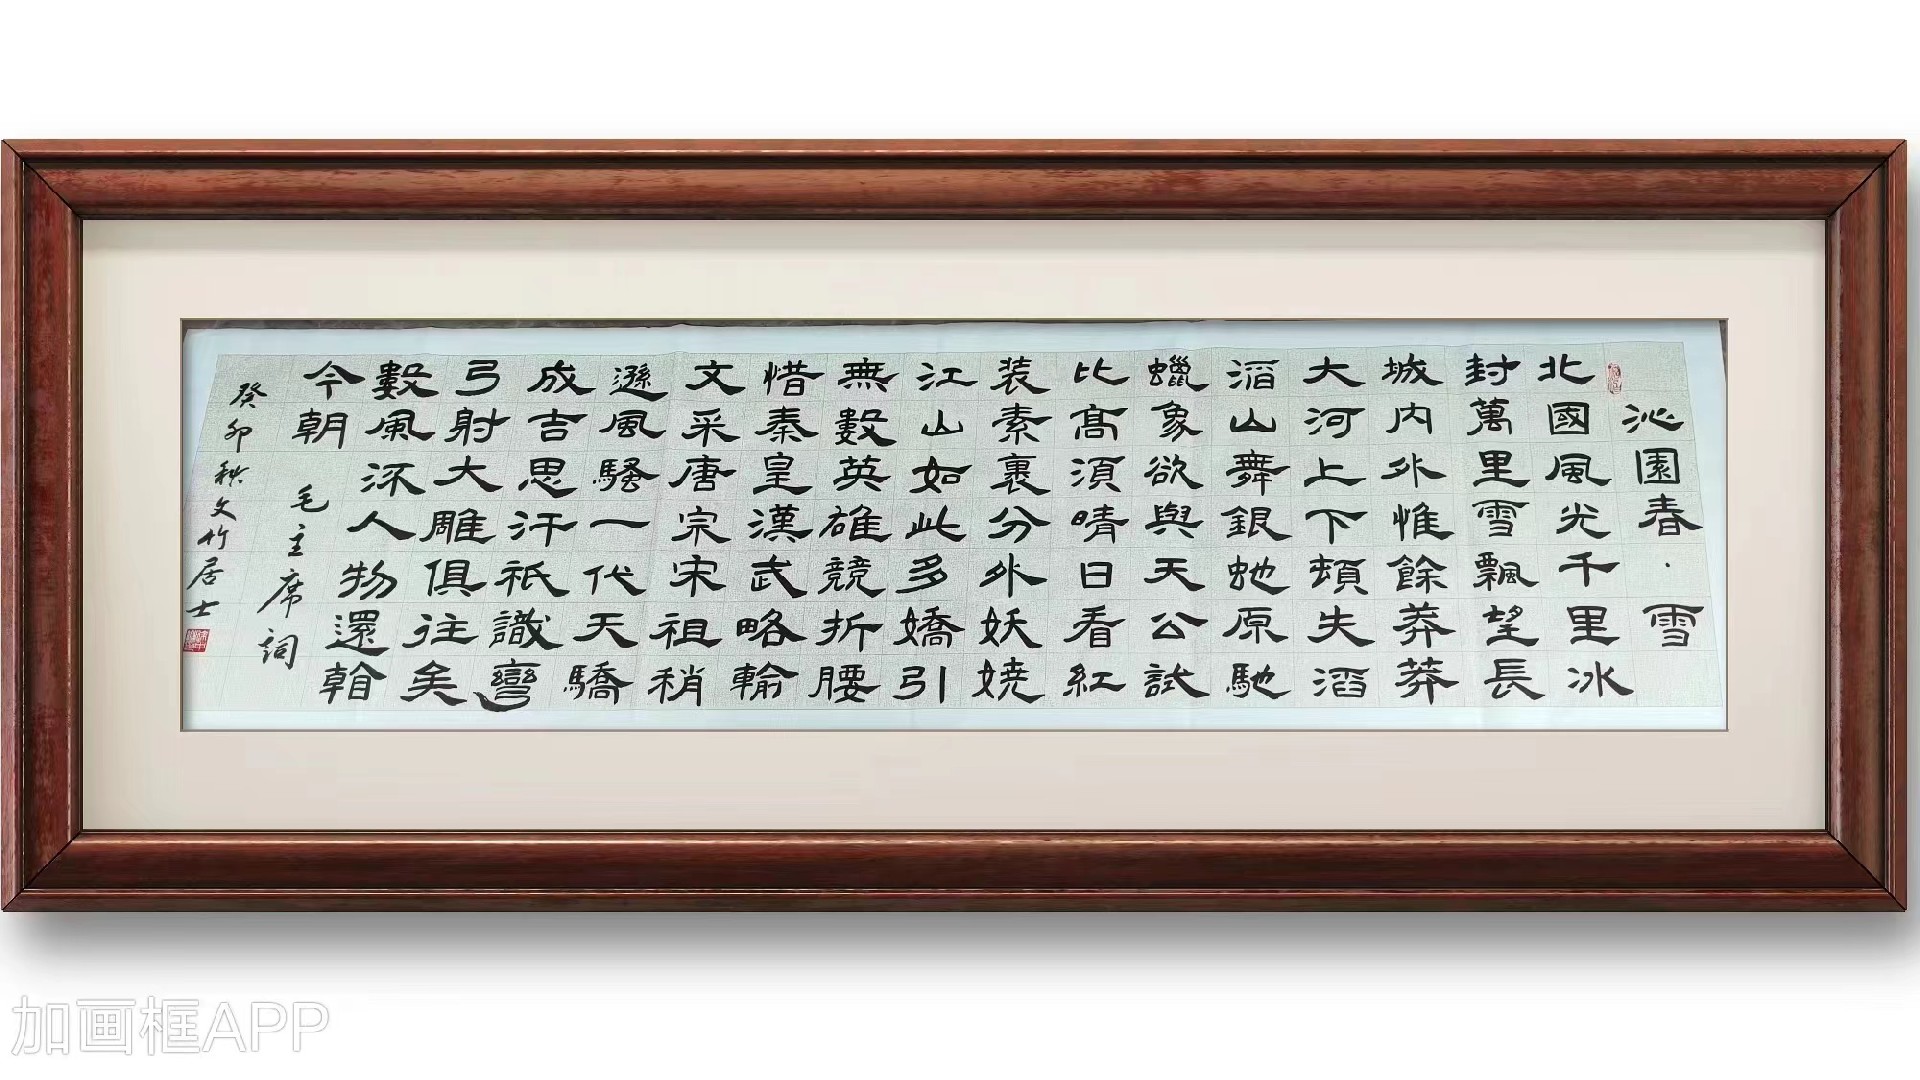 沁園春·雪
北國風光千里冰
封萬里雪飄望長
城内外惟餘莽莽
大河上下頓失滔
滔山舞銀虵原馳
蠟象欲與天公試
比髙須晴日看紅
装素裹分外妖嬈
江山如此多嬌引
無數英雄競折腰
惜秦皇漢武略輸
文采唐宗宋祖稍
遜風騷一代天驕
成吉思汗祇識彎
弓射大雕俱往矣
數風流人物還看
今朝 毛主席詞
癸卯秋文竹居士
加画框APP